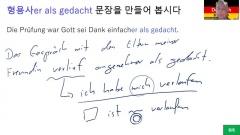 형용사er als gedacht 문장을 만들어 봅시다
Die Prüfung war Gott sei Dank einfacher als gedacht.
Das Gespräch mit den Eltern meiner
Freundin verlief angenehmer als gedacht.
↳ ich habe mich verlaufen
□ ist ~ verlaufen